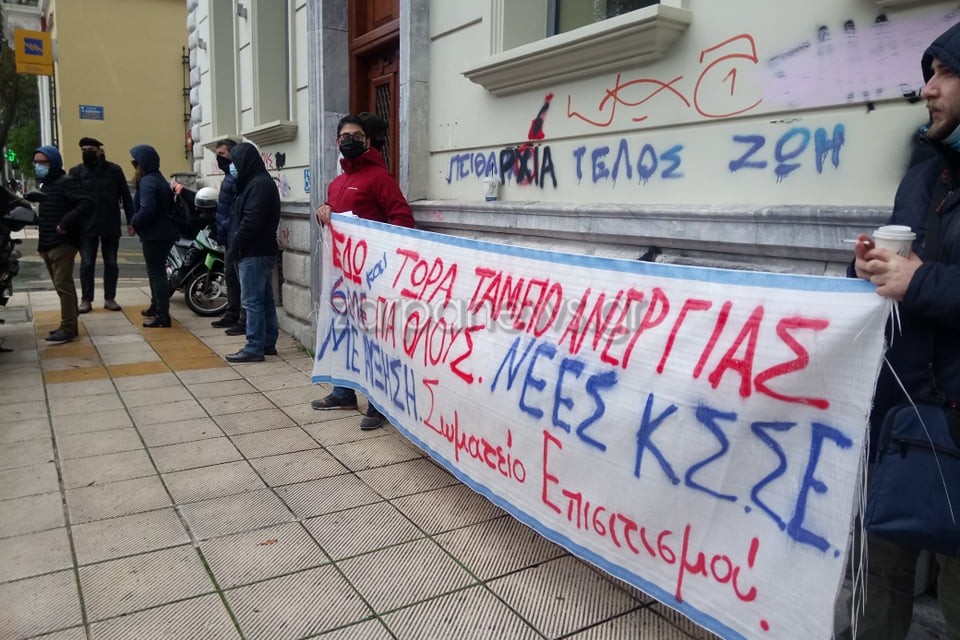 ΠΕΙΘΑΡΧΙΑ ΤΕΛΟΣ ΖΩΗ
1
ΕΔΩ και ΤΩΡΑ ΤΑΜΕΙΟ ΑΝΕΡΓΙΑΣ
ΓΙΑ ΟΛΟΥΣ. ΝΕΕΣ ΚΣΣΕ
ΜΕ ΑΥΞΗΣΗ. Σωματείο Επισιτισμού.
zarpanews.gr